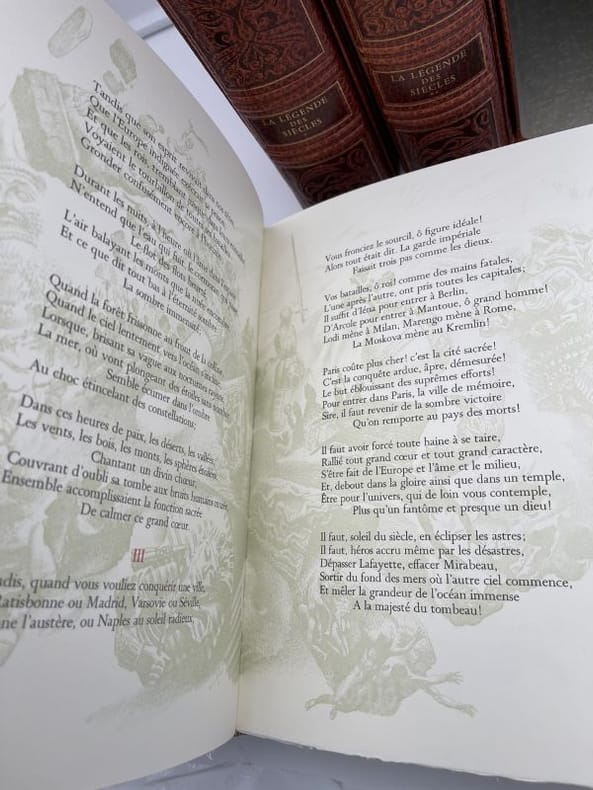 LA LÉGENDE
DES
SIÈCLES
LA LÉGENDE
DES
SIÈCLES
Tandis que son esprit
Que l'Europe indignée
Et que les rois
Voyaient le tourbillon de toutes
Gronder confusément encore à l'horizon
Durant les nuits, à l'heure où l'âme dans
N'entend que l'eau qui fuit, le
Le flot des flots heurté,
L'air balayant les monts que la nuée encombre,
Et ce que dit tout bas à l'éternité sombre
La sombre immensité!
Quand la forêt frisonne au front de la colline,
Quand le ciel lentement vers l'océan s'incline,
Lorsque, brisant sa vague aux nocturnes
La mer, où vont plongeant des étoiles sans nombre,
Semble écumer dans l'ombre
Au choc étincelant des constellations:
Dans ces heures de paix, les déserts, les vallées,
Les vents, les bois, les monts, les sphères étoilées,
Chantant un divin chœur,
Couvrant d'oubli sa tombe aux bruits humains
Ensemble accomplissaient la fonction sacrée
De calmer ce grand cœur.
III
dis, quand vous vouliez conquérir une ville,
Ratisbonne ou Madrid, Varsovie ou Séville,
ne l'austère, ou Naples au soleil radieux,
Vous fronciez le sourcil, ô figure idéale!
Alors tout était dit. La garde impériale
Faisait trois pas comme les dieux.
Vos batailles, ô roi! comme des mains fatales,
L'une après l'autre, ont pris toutes les capitales;
Il suffit d'Iéna pour entrer à Berlin.
D'Arcole pour entrer à Mantoue, ô grand homme!
Lodi mène à Milan, Marengo mène à Rome,
La Moskova mène au Kremlin!
Paris coûte plus cher! c'est la cité sacrée!
C'est la conquête ardue, âpre, démesurée!
Le but éblouissant des suprêmes efforts!
Pour entrer dans Paris, la ville de mémoire,
Sire, il faut revenir de la sombre victoire
Qu'on remporte au pays des morts!
Il faut avoir forcé toute haine à se taire,
Rallié tout grand cœur et tout grand caractère,
S'être fait de l'Europe et l'âme et le milieu,
Et, debout dans la gloire ainsi que dans un temple,
Être pour l'univers, qui de loin vous contemple,
Plus qu'un fantôme et presque un dieu!
Il faut, soleil du siècle, en éclipser les astres;
Il faut, héros accru même par les désastres,
Dépasser Lafayette, effacer Mirabeau,
Sortir du fond des mers où l'autre ciel commence,
Et mêler la grandeur de l'océan immense
A la majesté du tombeau!